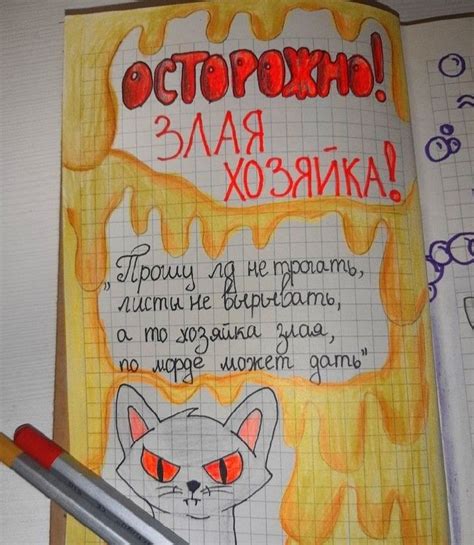 ОСТОРОЖНО!
ЗЛАЯ
ХОЗЯЙКА!
„Прошу лд не трогать,
листы не вырывать,
а то хозяйка злая,
по морде может дать"